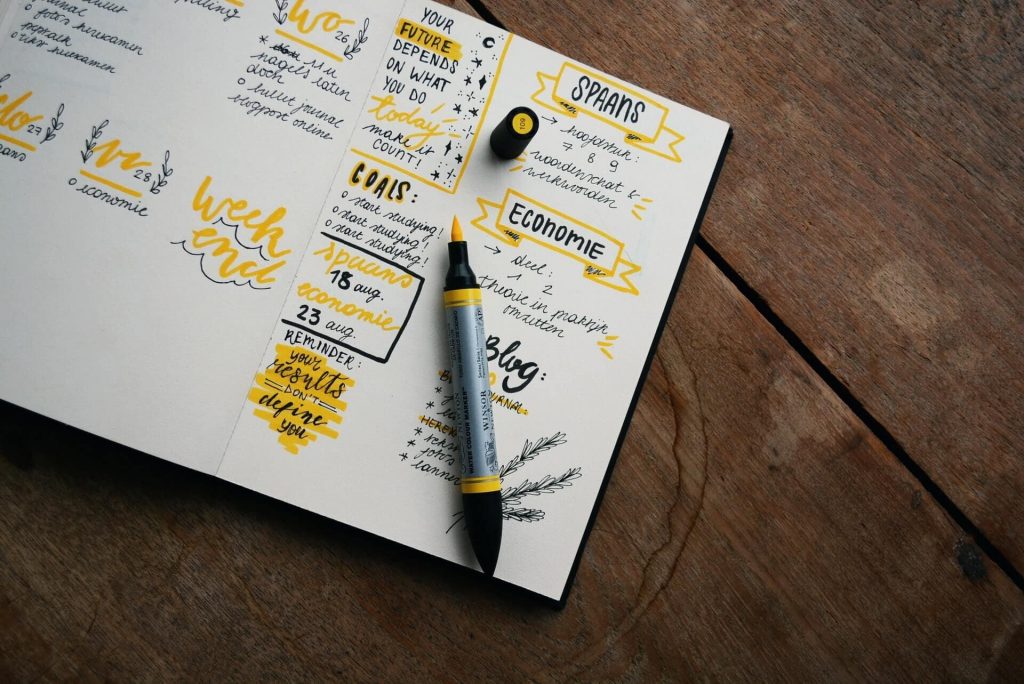 o fotos herexamen
herexamen
wo 26
nagels laten
doen
o bullet journal
blogpost online
do 27
vr 28
o economie
week
end
YOUR
FUTURE
DEPENDS
ON WHAT
YOU DO
today
make it
COUNT!
GOALS:
o start studying!
o start studying!
o start studying!
Spaans
18 aug.
economie
23 aug.
REMINDER:
your
results
DON'T
define
you
109
SPAANS
→ hoofdstuk:
7 8 9
woordenschat &
werkwoorden
ECONOMIE
→ deel:
1 2
theorie in praktijk
omzetten
Blog:
JOURNAL:
HEREX
* fotos
WATER COLOUR MARKER
WINSOR